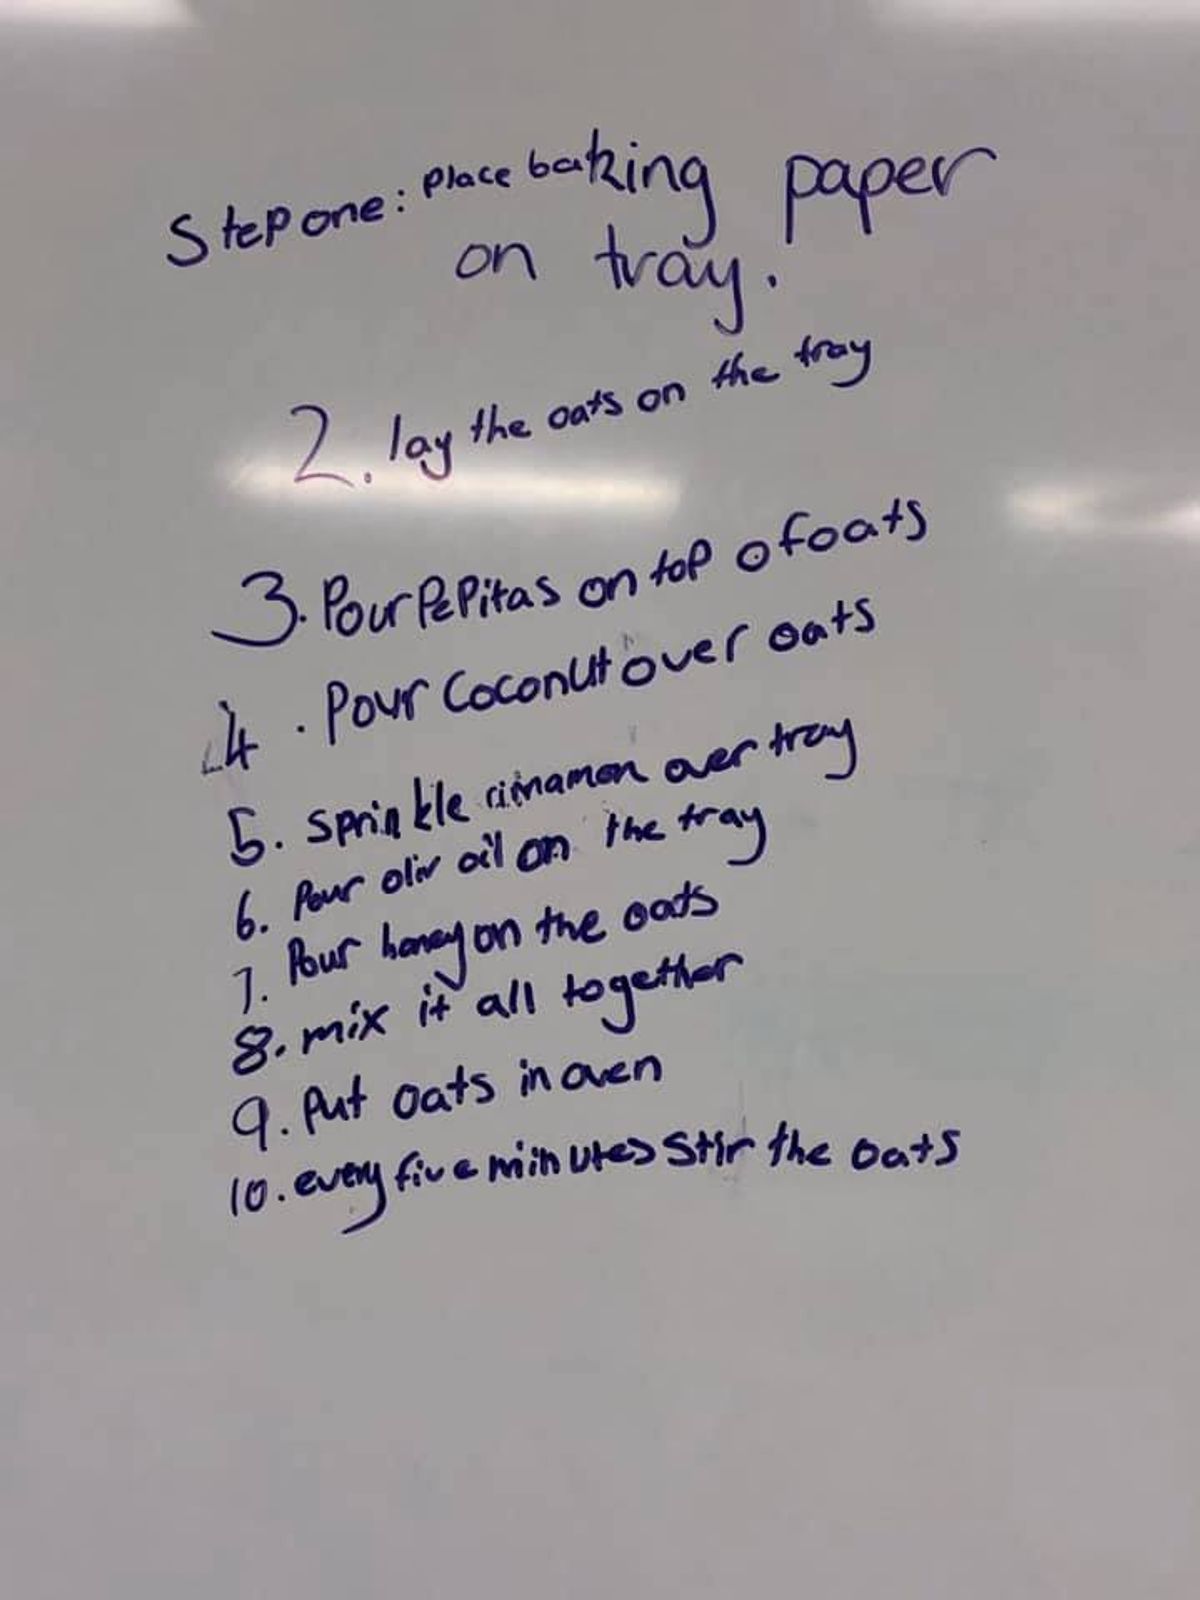 Step one: Place baking paper
on tray.
2. lay the oats on the tray
3. Pour Pepitas on top of oats
4. Pour Coconut over oats
5. Sprinkle cinnamon over tray
6. Pour oliv oil on the tray
7. Pour honey on the oats
8. mix it all together
9. Put oats in oven
10. every five minutes stir the oats